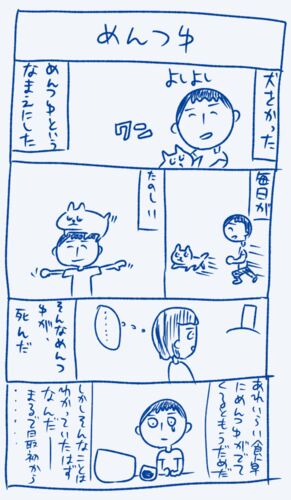 めんつゆ
犬をかった
よしよし
ワン
めんつゆという
なまえにした
毎日が
たのしい
そんなめんつ
ゆが、
死んだ
あれいらい食卓
にめんつゆがでて
くるともうだめだ
しかしそんなことは
わかっていたはず
なんだ――
まるで最初から
・・・・・・